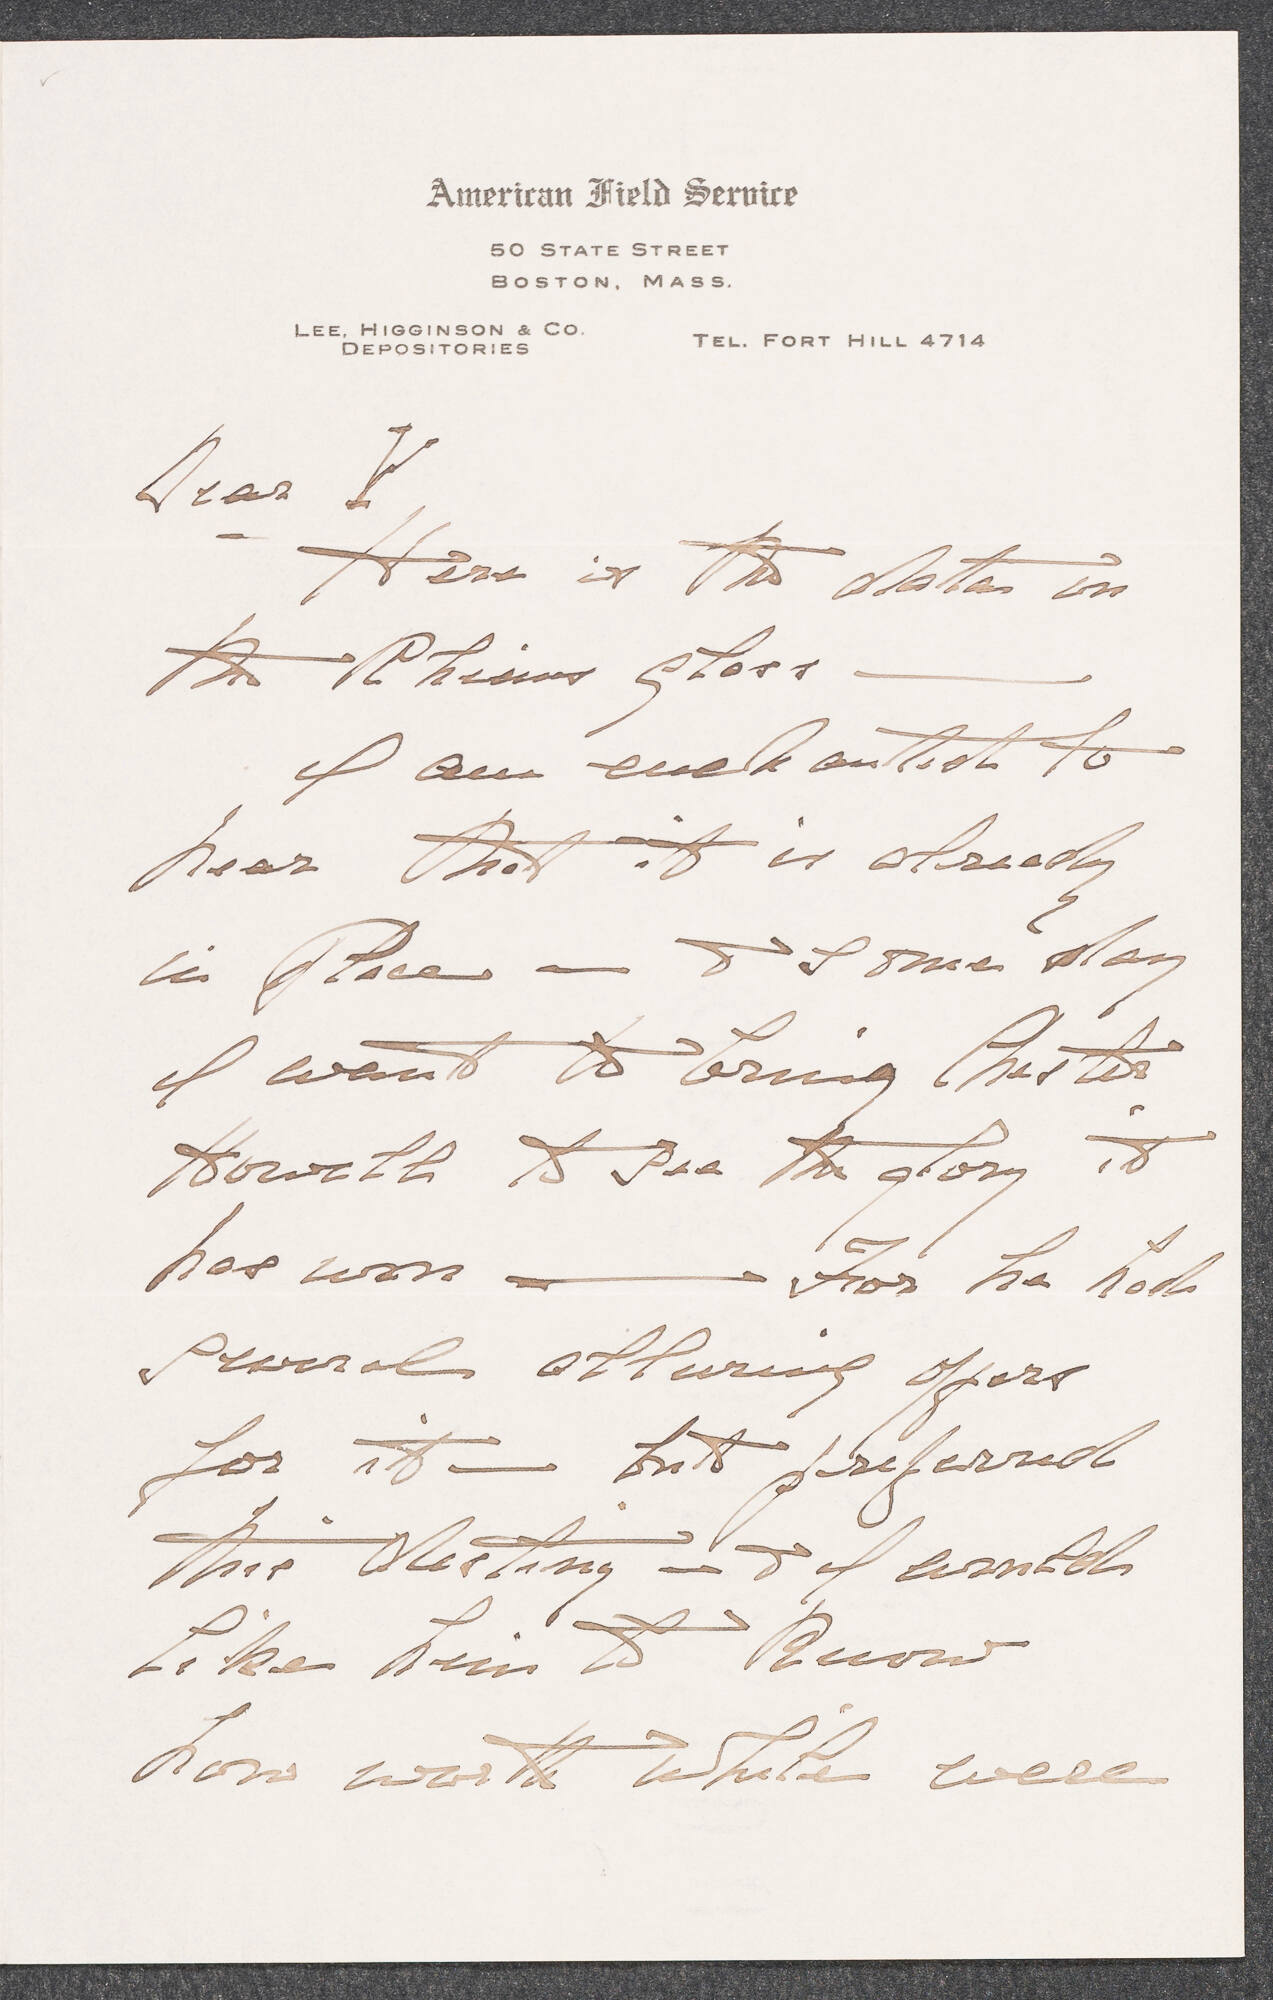 American Field Service
50 STATE STREET
BOSTON, MASS.
LEE, HIGGINSON & CO.
DEPOSITORIES
TEL. FORT HILL 4714
Dear Y
Here is the data on
the Rheims glass —
I am enchanted to
hear that it is already
in Place — & some day
I want to bring Chester
Howell to see the glory it
has won — For he had
several alluring offers
for it — but preferred
this destiny — & I would
like him to know
how worth while were